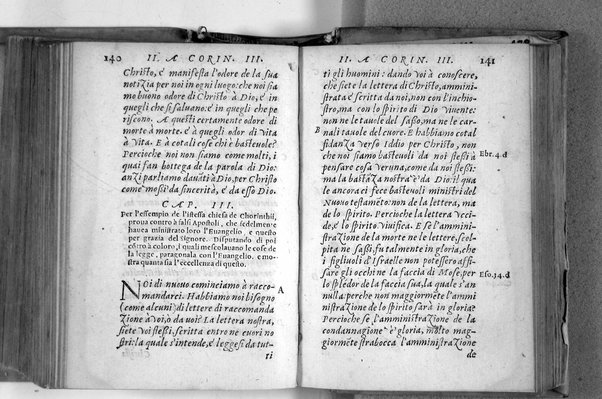 140 II. A CORIN. III.
Christo, è manifesta l'odore de la sua
notizia per noi in ogni luogo: che noi sia
mo buono odore di Christo à Dio, è in
quegli che si saluano: è in quegli che pe
riscono. A questi certamente odore di
morte à morte: è à quegli odor di vita
à vita. E à cotali cose chi è basteuole?
Percioche noi non siamo come molti, i
quai fan bottega de la parola di Dio:
anzi parliamo dauãti à Dio, per Christo
come mossi da sincerità, è da esso Dio.
CAP. III.
Per l'essempio de l'istessa chiesa de Chorinthii,
proua contro à falsi Apostoli, che fedelmente
hauea ministrato loro l'Euangelio, e questo
per grazia del signore. Disputando di poi
cõtro à coloro, i quali mescolauano le cose de
la legge, paragonala con l'Euangelio, e mo-
stra quanta sia l'eccellenza di quello.
NOi di nuouo cominciamo à racco- A
mandarci. Habbiamo noi bisogno
(come alcuni) di lettere di raccomanda
zione à voi, ò da voi? La lettera nostra,
siete voi stessi, scritta entro ne cuori no
stri: la quale s'intende, è leggesi da tut-
ti
II. A CORIN. III. 141
ti gli huomini: dando voi à conoscere,
che siete la lettera di Christo, ammini-
strata è scritta da noi, non con l'inchio-
stro, ma con lo spirito di Dio viuente:
non ne le tauole del sasso, ma ne le car-
B nali tauole del cuore. E habbiamo cotal
fidanza verso Iddio per Christo, non
che noi siamo basteuoli da noi stessi à Ebr. 4. d
pensare cosa veruna, come da noi stessi:
ma la bastãza nostra è da Dio: il qua
le ancora ci fece basteuoli ministri del
Nuouo testamẽto: non de la lettera, ma
de lo spirito. Percioche la lettera vcci-
de, è lo spirito viuifica. E se l'ammini-
strazione de la morte ne le lettere, scol-
pita ne sassi, fu talmente in gloria, che
i figliuoli d'Israelle non potessero affi-
sare gli occhi ne la faccia di Mose, per Eso. 34. d
lo splẽdor de la faccia sua, la quale s'an
nulla: perche non maggiormẽte l'ammi
nistrazione de lo spirito sarà in gloria?
Percioche se l'amministrazione de la
condannagione è gloria, molto mag-
giormẽte strabocca l'amministrazione
de